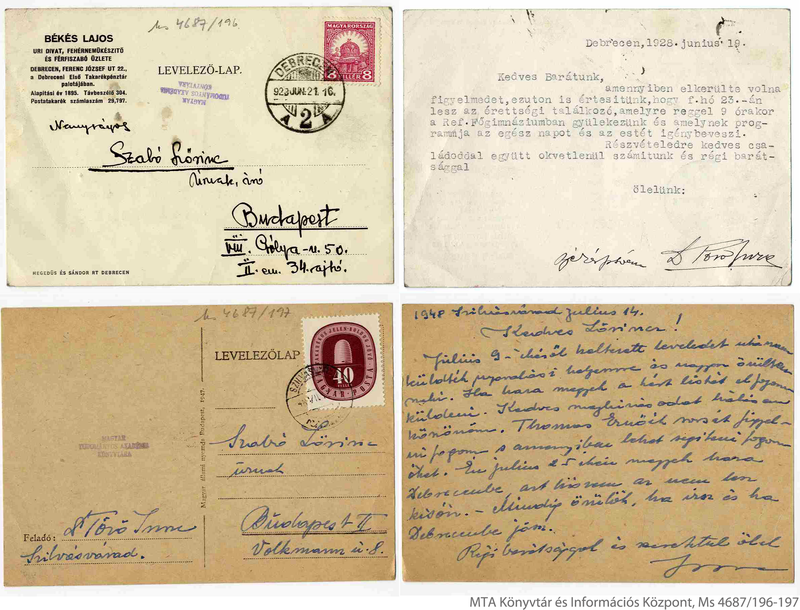 Ms 4687/196
BÉKÉS LAJOS
URI DIVAT, FEHÉRNEMŰKÉSZITŐ
ÉS FÉRFISZABÓ ÜZLETE
DEBRECEN, FERENC JÓZSEF UT 22.,
a Debreceni Első Takarékpénztár
palotájában.
Alapítási év 1895. Távbeszélő 304.
Postatakarék számlaszám 29,797.
LEVELEZŐ-LAP.
MAGYAR
TUDOMÁNYOS AKADÉMIA
KÖNYVTÁRA
MAGYARORSZÁG
8 FILLÉR 8
DEBRECEN
928 JUN. 21. 16.
A 2 A
Nagyságos
Szabó Lőrinc
Úrnak, író
Budapest
VIII. Gólya-u. 50.
II. em. 34. ajtó.
HEGEDÜS ÉS SÁNDOR RT DEBRECEN
Debrecen, 1928. junius 19.
Kedves Barátunk,
amennyiben elkerülte volna
figyelmedet, ezuton is értesitünk, hogy f.hó 23.-án
lesz az érettségi találkozó, amelyre reggel 9 órakor
a Ref. Főgimnáziumban gyülekezünk és amelynek prog-
ramja az egész napot és az estét igénybeveszi.
Részvételedre kedves csa-
ládoddal együtt okvetlenül számitunk és régi barát-
sággal
ölelünk:
Dr Törő Imre
Ms 4687/197
LEVELEZŐLAP
40
FILLÉR
MAGYAR POSTA
MAGYAR
TUDOMÁNYOS AKADÉMIA
KÖNYVTÁRA
Magyar állami nyomda Budapest, 1947.
Szabó Lőrinc
úrnak
Budapest II
Volkmann u. 8.
Feladó: Dr Törő Imre
Szilvásvárad.
1948 Szilvásvárad július 14.
Kedves Lőrincz!
Július 9-éről keltezett leveledet utánam
küldték nyaralási helyemre és nagyon örültem
neki. Ha haza megyek a kért listát el fogom
küldeni. Kedves meghívásodat hálásan
köszönöm. Thomas Ernőék sorsát figyel-
ni fogom s amennyiben lehet segíteni fogom
őket. Én július 25-ikén megyek haza
Debrecenbe azt hiszem az nem lesz
késő. - Mindig örülök, ha írsz és ha
Debrecenbe jössz.
Régi barátsággal és szeretettel ölel
Imre
MTA Könyvtár és Információs Központ, Ms 4687/196-197